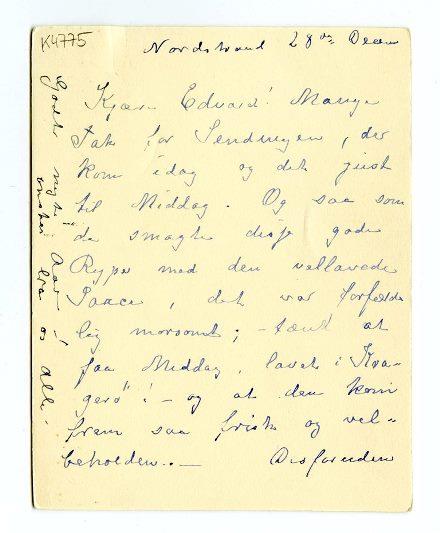 K4775
Nordstrand 28de Decem
Kjære Edvard! Mange
Tak for Sendingen, der
kom idag og det just
til Middag. Og saa som
de smagte disse gode
Ryper med den vellavede
Sauce, det var forfærde
lig morsomt; - tænk at
faa Middag, lavet i Kra-
gerö"! - og at den kom
frem saa frisk og vel-
beholden. -
Godt nytt Aar -
ønskes fra os alle -